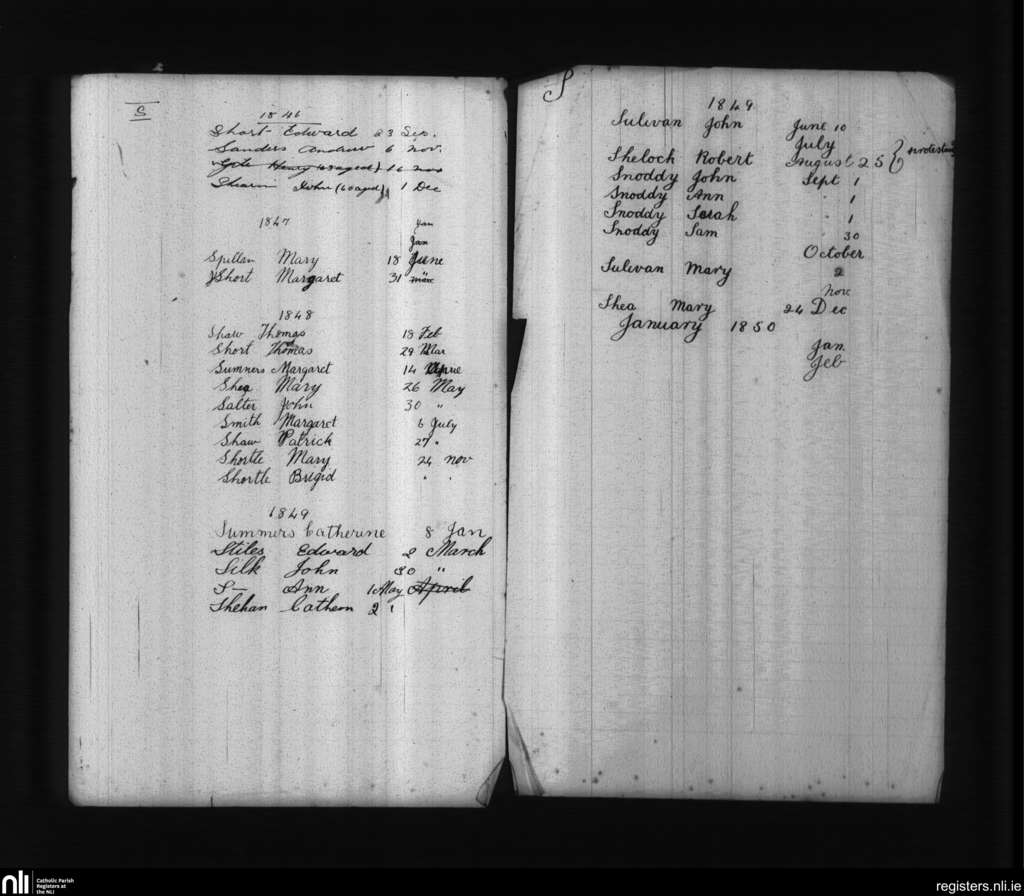 S
1846
Short Edward 23 Sep.
Sanders Andrew 6 Nov.
Henry (63 aged) 16 Nov
John (60 aged) 1 Dec
1847
Jan
Jan
Spillan Mary 18 June
Short Margaret 31
1848
Shaw Thomas 18 Feb
Short Thomas 29 Mar
Sumners Margaret 14 Aprie
Shea Mary 26 May
Salter John 30 "
Smith Margaret 6 July
Shaw Patrick 27 "
Shortle Mary 24 Nov
Shortle Brigid " "
1849
Summers Catherine 8 Jan
Stiles Edward 2 March
Silk John 30 "
S— Ann 1 May April
Shehan Cathern 2 "
S
1849
Sulivan John June 10
July
Sheloch Robert August 25 } protestant
Snoddy John Sept 1
Snoddy Ann " 1
Snoddy Sarah " 1
Snoddy Sam 30
October
Sulivan Mary 2
Nov
Shea Mary 24 Dec
January 1850
Jan
Feb
nli
Catholic Parish
Registers at
the NLI
registers.nli.ie